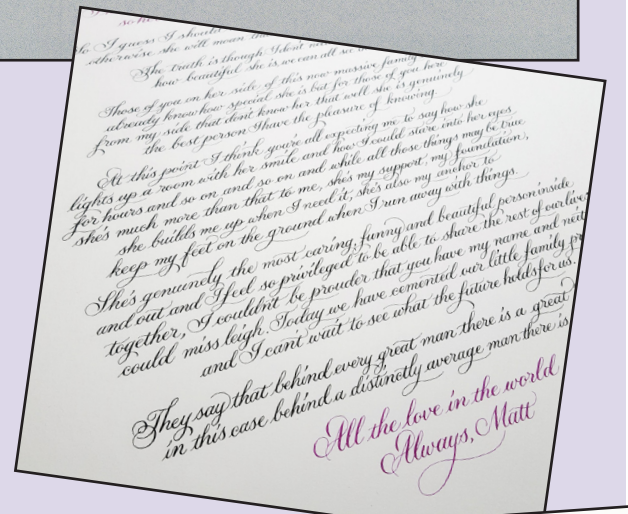 So I guess I should
otherwise she will moan the
The truth is though I don't
how beautiful she is we can all see
Those of you on her side of this now massive family
already know how special she is but for those of you here
from my side that don't know her that well she is genuinely
the best person I have the pleasure of knowing.
At this point I think you're all expecting me to say how she
lights up a room with her smile and how I could stare into her eyes
for hours and so on and so on and while all those things may be true
she's much more than that to me, she's my support, my foundation,
she builds me up when I need it, she's also my anchor to
keep my feet on the ground when I run away with things.
She's genuinely the most caring, funny and beautiful person inside
and out and I feel so privileged to be able to share the rest of our lives
together, I couldn't be prouder that you have my name and
could miss leigh. Today we have cemented our little family
and I can't wait to see what the future holds for us.
They say that behind every great man there is a great
in this case behind a distinctly average man there is
All the love in the world
Always, Matt